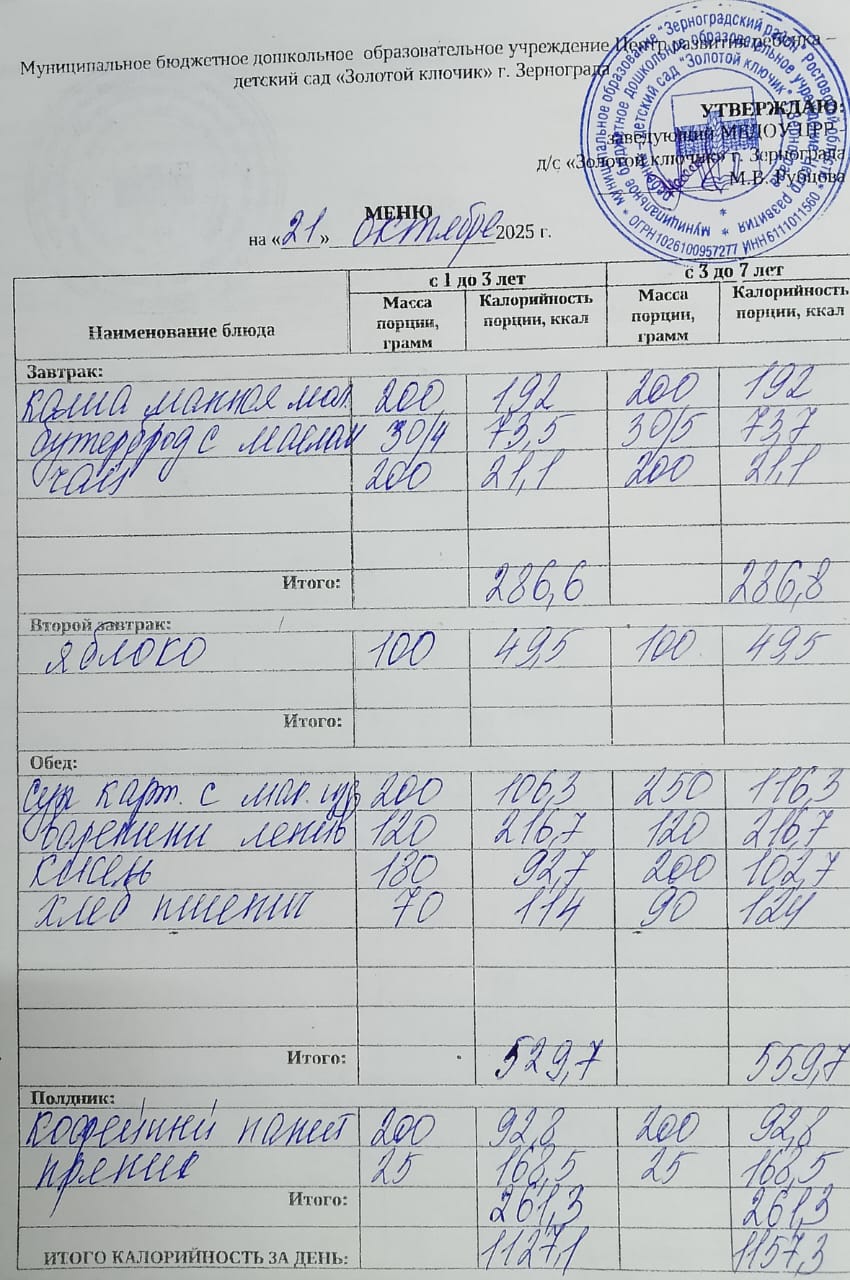 Муниципальное бюджетное дошкольное образовательное учреждение Центр развития ребенка –
детский сад «Золотой ключик» г. Зернограда
УТВЕРЖДАЮ:
заведующий МБДОУ ЦРР -
д/с «Золотой ключик» г. Зернограда
М.В. Рубцова
* муниципальное образование "Зерноградский район" Ростовской области *
ОГРН1026100957277 ИНН6111011560 *
МЕНЮ
на «21» октября 2025 г.
Наименование блюда с 1 до 3 лет с 3 до 7 лет
Масса порции, грамм Калорийность порции, ккал Масса порции, грамм Калорийность порции, ккал
Завтрак:
Каша манная мол. 200 192 200 192
бутерброд с маслом 30/4 73,5 30/5 73,7
чай 200 21,1 200 21,1
Итого: 286,6 286,8
Второй завтрак:
яблоко 100 49,5 100 49,5
Итого:
Обед:
суп карт. с мак. изд 200 106,3 250 116,3
вареники ленив 120 216,7 120 216,7
кисель 180 92,7 200 102,7
хлеб пшенич 70 114 90 124
Итого: 529,7 559,7
Полдник:
кофейный напит 200 92,8 200 92,8
пряник 25 168,5 25 168,5
Итого: 261,3 261,3
ИТОГО КАЛОРИЙНОСТЬ ЗА ДЕНЬ: 1127,1 1157,3